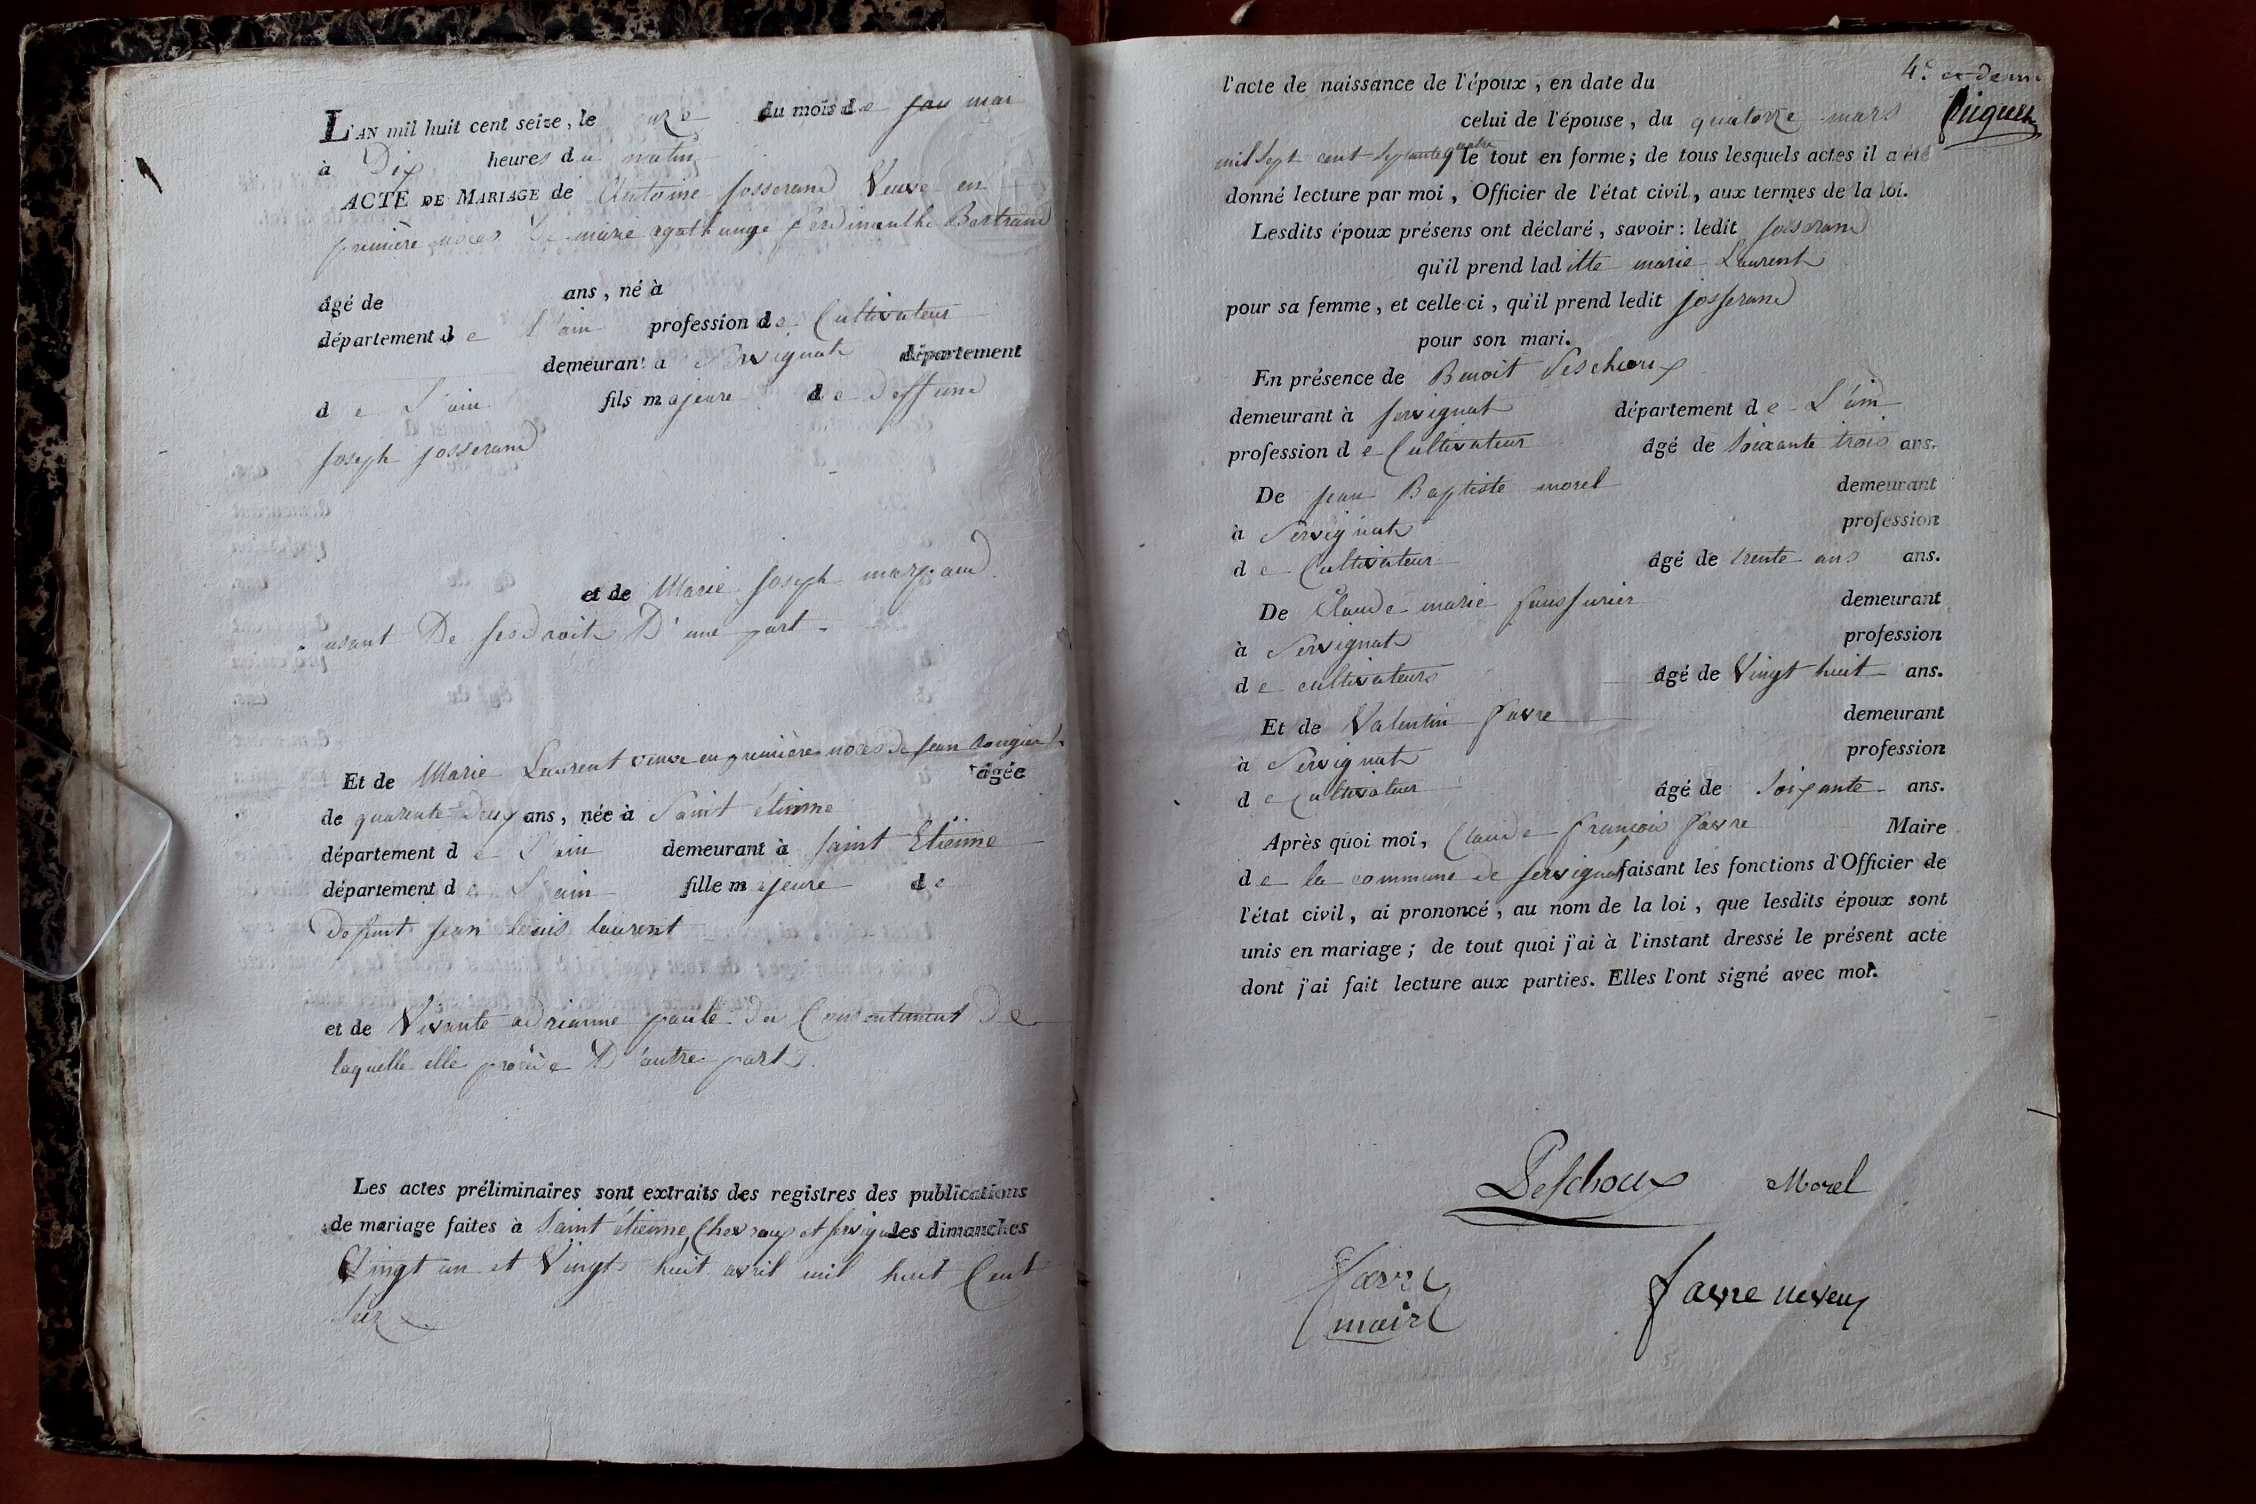 L'AN mil huit cent seize, le onze du mois de mai
à Dix heures du matin
ACTE DE MARIAGE de Antoine Josserand Veuve en
première noces de marie agathange Bertrand
âgé de ans, né à
département de L'ain profession de Cultivateur
demeurant à Servignat département
de L'ain fils majeure de deffund
Joseph josserand
et de Marie Joseph
usant De ses droits D'une part
Et de Marie Laurent veuve en première noces de Jean
âgée
de quarente deux ans, née à Saint étienne
département de L'ain demeurant à saint Etienne
département de L'ain fille majeure de
defunt jean louis laurent
et de Vivante adrianne du Consentement De
laquelle elle procède D'autre part
Les actes préliminaires sont extraits des registres des publications
de mariage faites à Saint étienne, Chevroux et servignat les dimanches
Vingt un et Vingt huit avril mil huit Cent
Seize
4e et dernier
l'acte de naissance de l'époux, en date du
celui de l'épouse, du quatorze mars
mil sept cent septante quatre le tout en forme; de tous lesquels actes il a été
donné lecture par moi, Officier de l'état civil, aux termes de la loi.
Lesdits époux présens ont déclaré, savoir: ledit josserand
qu'il prend laditte marie Laurent
pour sa femme, et celle-ci, qu'il prend ledit josserand
pour son mari.
En présence de Benoit Deschoux
demeurant à servignat département de L'ain
profession de Cultivateur âgé de soixante trois ans.
De jean Baptiste morel demeurant
à Servignat profession
de Cultivateur âgé de trente ans ans.
De Claude marie demeurant
à Servignat profession
de cultivateurs âgé de Vingt huit ans.
Et de Valentin favre demeurant
à Servignat profession
de Cultivateur âgé de soixante ans.
Après quoi moi, Claude François favre Maire
de la commune de servignat faisant les fonctions d'Officier de
l'état civil, ai prononcé, au nom de la loi, que lesdits époux sont
unis en mariage; de tout quoi j'ai à l'instant dressé le présent acte
dont j'ai fait lecture aux parties. Elles l'ont signé avec moi.
Deschoux Morel
favre
maire
favre neveu